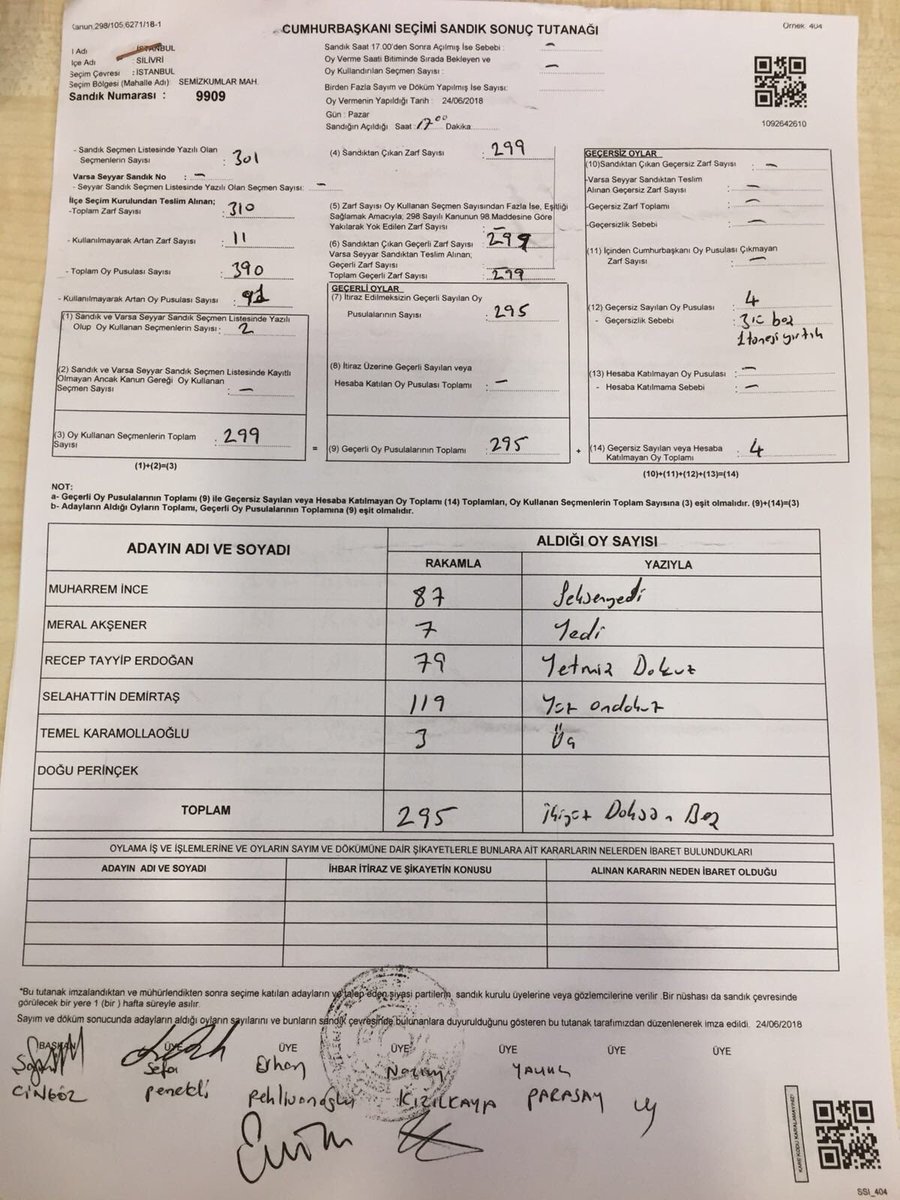 Kanun 298/105,6271/18-1
Örnek: 404
CUMHURBAŞKANI SEÇİMİ SANDIK SONUÇ TUTANAĞI
İl Adı : İSTANBUL
İlçe Adı : SİLİVRİ
Seçim Çevresi : İSTANBUL
Seçim Bölgesi (Mahalle Adı) : SEMİZKUMLAR MAH.
Sandık Numarası : 9909
Sandık Saat 17.00'den Sonra Açılmış İse Sebebi : —
Oy Verme Saati Bitiminde Sırada Bekleyen ve
Oy Kullandırılan Seçmen Sayısı : —
Birden Fazla Sayım ve Döküm Yapılmış İse Sayısı:
Oy Vermenin Yapıldığı Tarih : 24/06/2018
Gün : Pazar
Sandığın Açıldığı Saat : 17 00 Dakika:
1092642610
- Sandık Seçmen Listesinde Yazılı Olan
Seçmenlerin Sayısı : 301
Varsa Seyyar Sandık No : —
- Seyyar Sandık Seçmen Listesinde Yazılı Olan Seçmen Sayısı: —
İlçe Seçim Kurulundan Teslim Alınan;
-Toplam Zarf Sayısı : 310
- Kullanılmayarak Artan Zarf Sayısı : 11
- Toplam Oy Pusulası Sayısı : 390
- Kullanılmayarak Artan Oy Pusulası Sayısı : 91
(1) Sandık ve Varsa Seyyar Sandık Seçmen Listesinde Yazılı
Olup Oy Kullanan Seçmenlerin Sayısı : 2
(2) Sandık ve Varsa Seyyar Sandık Seçmen Listesinde Kayıtlı
Olmayan Ancak Kanun Gereği Oy Kullanan
Seçmen Sayısı : —
(3) Oy Kullanan Seçmenlerin Toplam
Sayısı : 299
(1)+(2)=(3)
(4) Sandıktan Çıkan Zarf Sayısı : 299
(5) Zarf Sayısı Oy Kullanan Seçmen Sayısından Fazla İse, Eşitliği
Sağlamak Amacıyla, 298 Sayılı Kanunun 98.Maddesine Göre
Yakılarak Yok Edilen Zarf Sayısı : —
(6) Sandıktan Çıkan Geçerli Zarf Sayısı : 299
Varsa Seyyar Sandıktan Teslim Alınan;
Geçerli Zarf Sayısı :
Toplam Geçerli Zarf Sayısı : 299
GEÇERLİ OYLAR
(7) İtiraz Edilmeksizin Geçerli Sayılan Oy
Pusulalarının Sayısı : 295
(8) İtiraz Üzerine Geçerli Sayılan veya
Hesaba Katılan Oy Pusulası Toplamı : —
=
(9) Geçerli Oy Pusulalarının Toplamı : 295
+
GEÇERSİZ OYLAR
(10)Sandıktan Çıkan Geçersiz Zarf Sayısı : —
-Varsa Seyyar Sandıktan Teslim
Alınan Geçersiz Zarf Sayısı : —
-Geçersiz Zarf Toplamı : —
-Geçersizlik Sebebi : —
(11) İçinden Cumhurbaşkanı Oy Pusulası Çıkmayan
Zarf Sayısı : —
(12) Geçersiz Sayılan Oy Pusulası : 4
- Geçersizlik Sebebi : 3
1 tanesi yırtık
(13) Hesaba Katılmayan Oy Pusulası : —
- Hesaba Katılmama Sebebi : —
(14) Geçersiz Sayılan veya Hesaba
Katılmayan Oy Toplamı : 4
(10)+(11)+(12)+(13)=(14)
NOT:
a- Geçerli Oy Pusulalarının Toplamı (9) ile Geçersiz Sayılan veya Hesaba Katılmayan Oy Toplamı (14) Toplamları, Oy Kullanan Seçmenlerin Toplam Sayısına (3) eşit olmalıdır. (9)+(14)=(3)
b- Adayların Aldığı Oyların Toplamı, Geçerli Oy Pusulalarının Toplamına (9) eşit olmalıdır.
ADAYIN ADI VE SOYADI
ALDIĞI OY SAYISI
RAKAMLA YAZIYLA
MUHARREM İNCE 87 Seksenyedi
MERAL AKŞENER 7 Yedi
RECEP TAYYİP ERDOĞAN 79 Yetmiş Dokuz
SELAHATTİN DEMİRTAŞ 119 Yüz ondokuz
TEMEL KARAMOLLAOĞLU 3 Üç
DOĞU PERİNÇEK
TOPLAM 295 İkiyüz Doksan Beş
OYLAMA İŞ VE İŞLEMLERİNE VE OYLARIN SAYIM VE DÖKÜMÜNE DAİR ŞİKAYETLERLE BUNLARA AİT KARARLARIN NELERDEN İBARET BULUNDUKLARI
ADAYIN ADI VE SOYADI İHBAR İTİRAZ VE ŞİKAYETİN KONUSU ALINAN KARARIN NEDEN İBARET OLDUĞU
*Bu tutanak imzalandıktan ve mühürlendikten sonra seçime katılan adayların ve talep eden siyasi partilerin, sandık kurulu üyelerine veya gözlemcilerine verilir .Bir nüshası da sandık çevresinde
görülecek bir yere 1 (bir ) hafta süreyle asılır.
Sayım ve döküm sonucunda adayların aldığı oyların sayılarını ve bunların sandık çevresinde bulunanlara duyurulduğunu gösteren bu tutanak tarafımızdan düzenlenerek imza edildi. 24/06/2018
BAŞKAN ÜYE ÜYE ÜYE ÜYE ÜYE ÜYE
Sefa Erhan Nazım
CİNGÖZ Penekli Pehlivanoğlu KIZILKAYA PARASAY
KARE KODU KARALAMAYINIZ!
SSİ_404